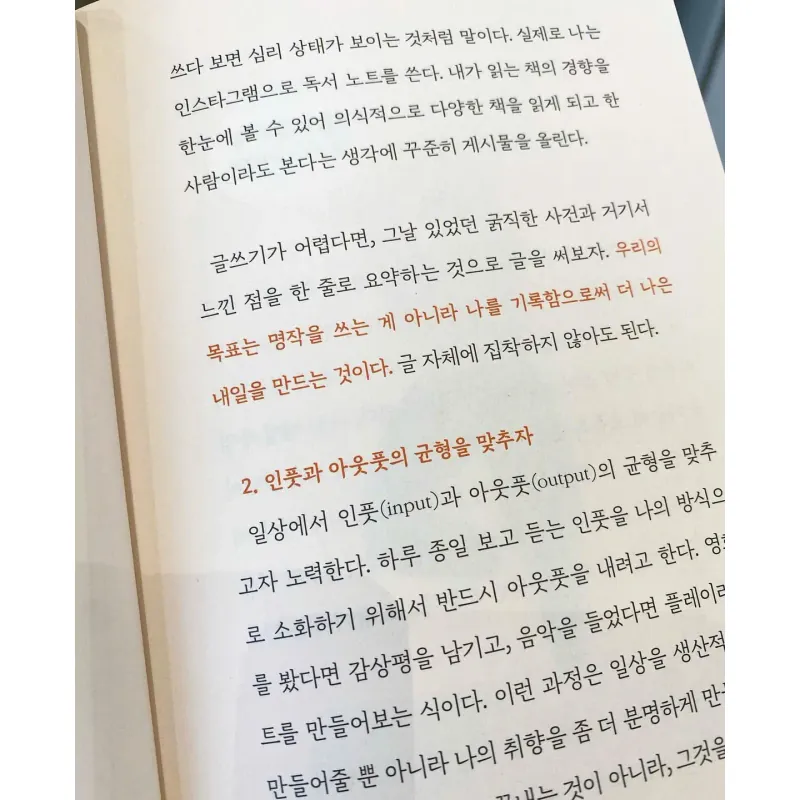 쓰다 보면 심리 상태가 보이는 것처럼 말이다. 실제로 나는
인스타그램으로 독서 노트를 쓴다. 내가 읽는 책의 경향을
한눈에 볼 수 있어 의식적으로 다양한 책을 읽게 되고 한
사람이라도 본다는 생각에 꾸준히 게시물을 올린다.
글쓰기가 어렵다면, 그날 있었던 굵직한 사건과 거기서
느낀 점을 한 줄로 요약하는 것으로 글을 써보자. 우리의
목표는 명작을 쓰는 게 아니라 나를 기록함으로써 더 나은
내일을 만드는 것이다. 글 자체에 집착하지 않아도 된다.
2. 인풋과 아웃풋의 균형을 맞추자
일상에서 인풋(input)과 아웃풋(output)의 균형을 맞추
고자 노력한다. 하루 종일 보고 듣는 인풋을 나의 방식으
로 소화하기 위해서 반드시 아웃풋을 내려고 한다. 영화
를 봤다면 감상평을 남기고, 음악을 들었다면 플레이리
트를 만들어보는 식이다. 이런 과정은 일상을 생산적
만들어줄 뿐 아니라 나의 취향을 좀 더 분명하게 만
것이 아니라, 그것을